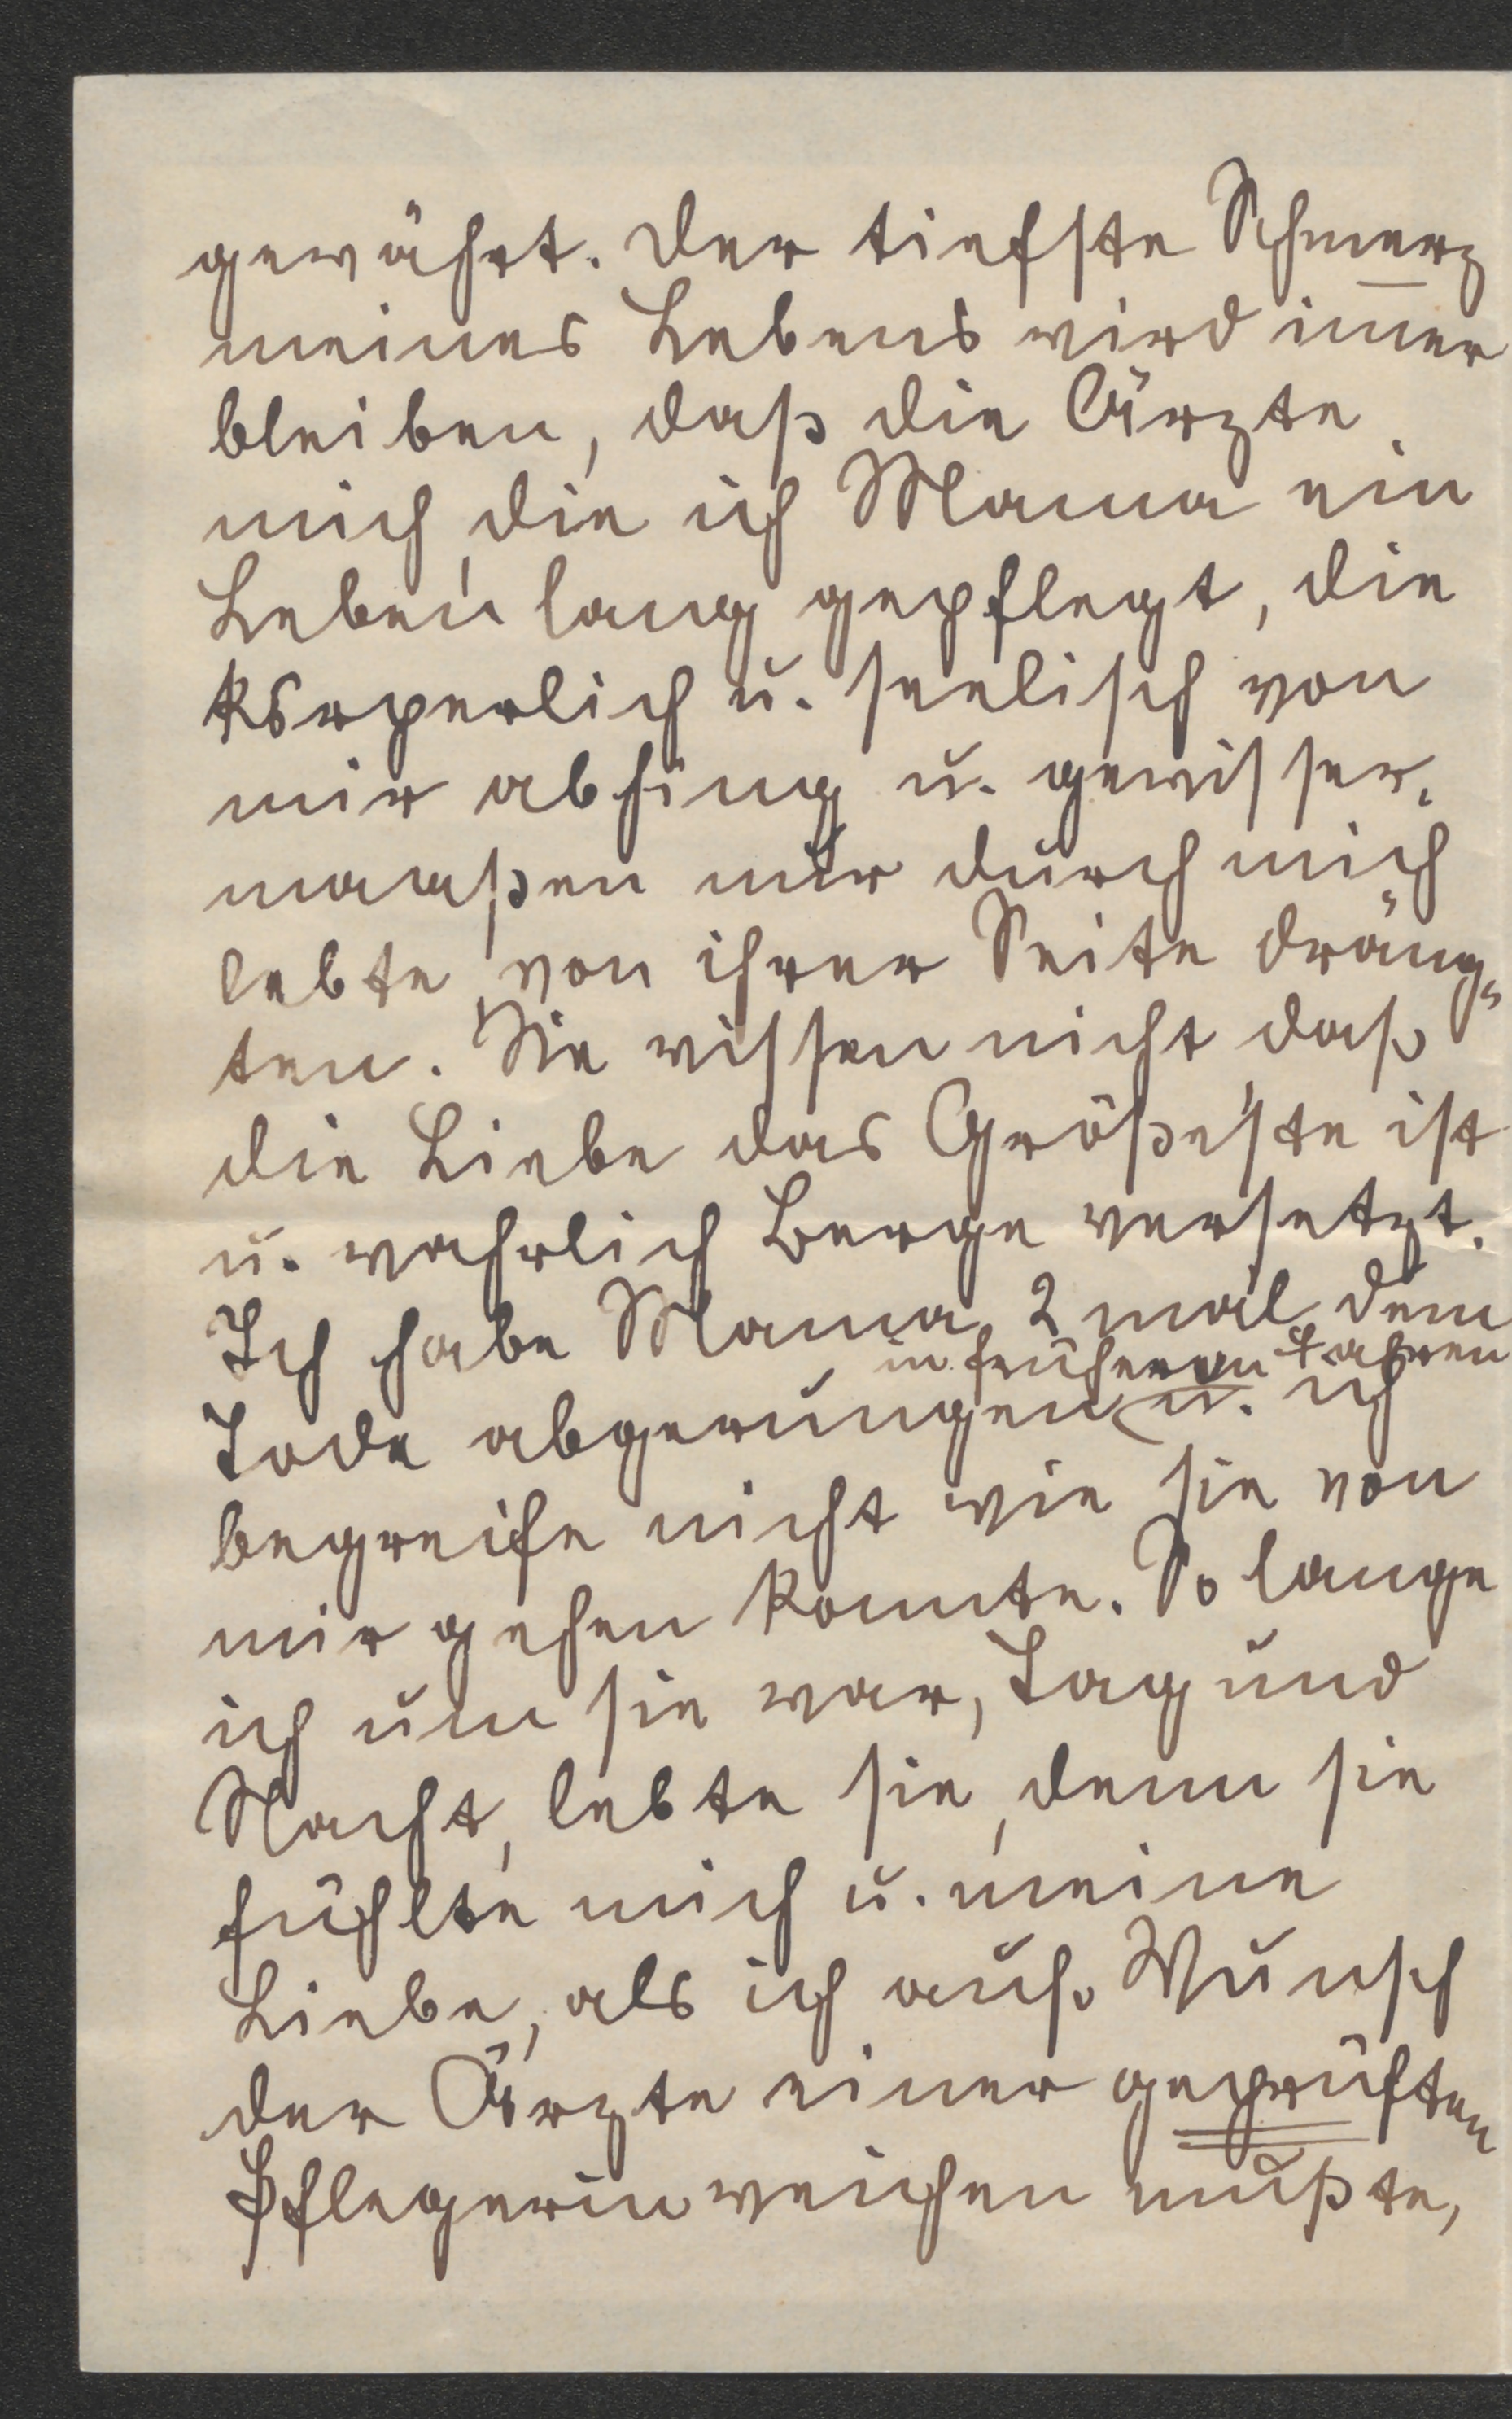 gewährt. Der tiefste Schmerz
meines Lebens wird im̅er
bleiben, daß die Ärzte
mich, die ich Mama ein
Leben lang gepflegt, die
körperlich u. seelisch von
mir abhing u. gewisser-
maaßen nur durch mich
lebte, von ihrer Seite dräng-
ten. Sie wissen nicht daß
die Liebe das Größeste ist
u. wahrlich Berge versetzt.
Ich habe Mama 2 mal dem
in früheren Jahren
Tode abgerungen u. ich
begreife nicht wie sie von
mir gehen konnte. So lange
ich um sie war, Tag und
Nacht, lebte sie, denn sie
fühlte mich u. meine
Liebe, als ich auf Wunsch
der Ärzte einer geprüften
Pflegerin weichen mußte,